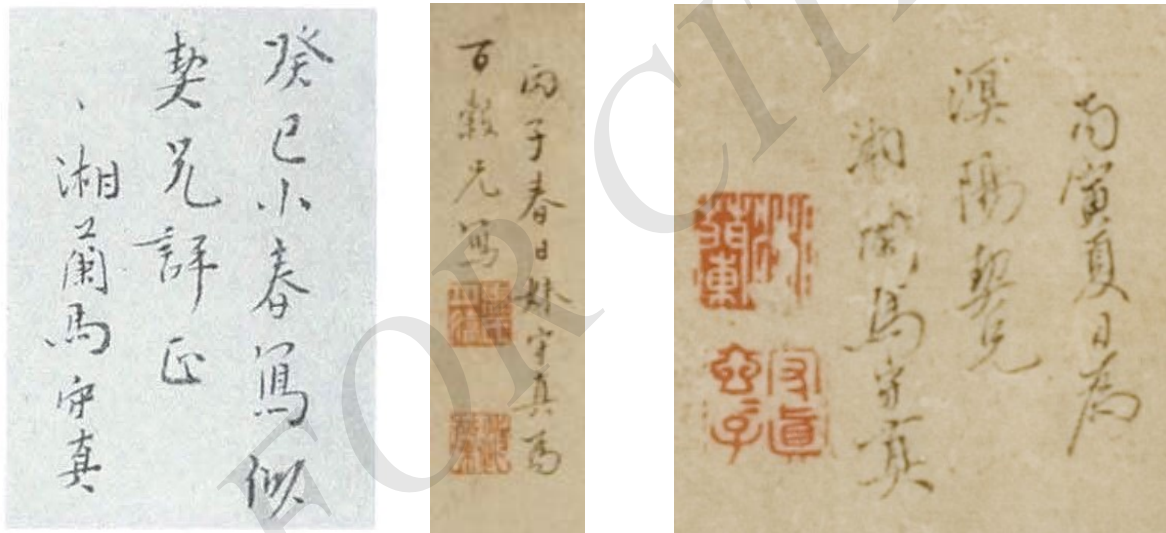 癸巳小春寫似
契兄評正
湘蘭馬守真
丙子春日妹守真為
百穀兄寫
丙寅夏日為
契兄
湘蘭馬守真
FOR CIT